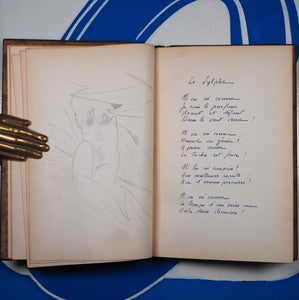 Le Sylphe
Ni vu ni connu
Je suis le parfum
Vivant et défunt
Dans le vent venu !
Ni vu ni connu,
Hasard ou génie ?
A peine venu
La tâche est finie !
Ni lu ni compris ?
Aux meilleurs esprits
Que d'erreurs promises !
Ni vu ni connu
Le temps d'un sein nu
Entre deux chemises !